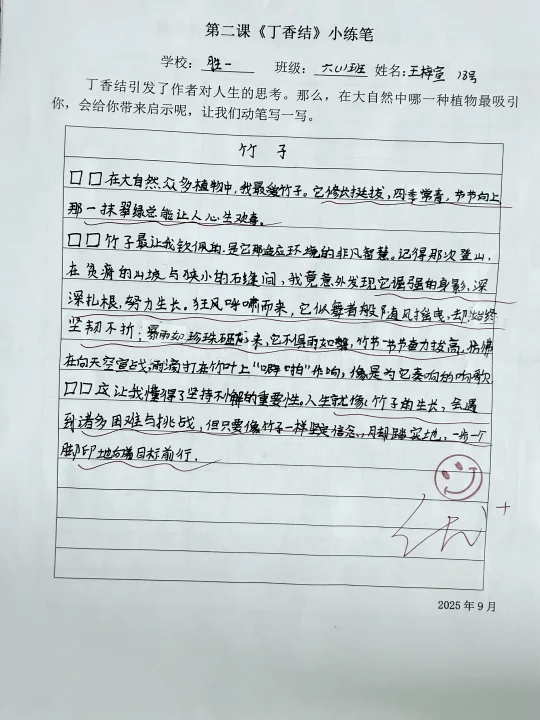 第二课《丁香结》小练笔
学校：胜一 班级：六(1)班 姓名：王梓萱 18号
丁香结引发了作者对人生的思考。那么，在大自然中哪一种植物最吸引
你，会给你带来启示呢，让我们动笔写一写。
竹子
□□在大自然众多植物中，我最爱竹子。它修长挺拔，四季常青，节节向上
那一抹翠绿总能让人心生欢喜。
□□竹子最让我钦佩的是它那适应环境的非凡智慧。记得那次登山，
在贫瘠的山坡与狭小的石缝间，我竟意外发现它倔强的身影，深
深扎根，努力生长。狂风呼啸而来，它似舞者般随风摇曳，却始终
坚韧不折；暴雨如珍珠砸来，它不惧雨如鞭，竹节节节奋力拔高，仿佛
在向天空宣战，雨滴打在竹叶上"噼啪"作响，像是为它奏响的响歌
□□这让我懂得了坚持不懈的重要性。人生就像竹子的生长，会遇
到诸多困难与挑战，但只要像竹子一样坚定信念，脚踏实地，一步一个
脚印地朝目标前行。
优+
2025年9月